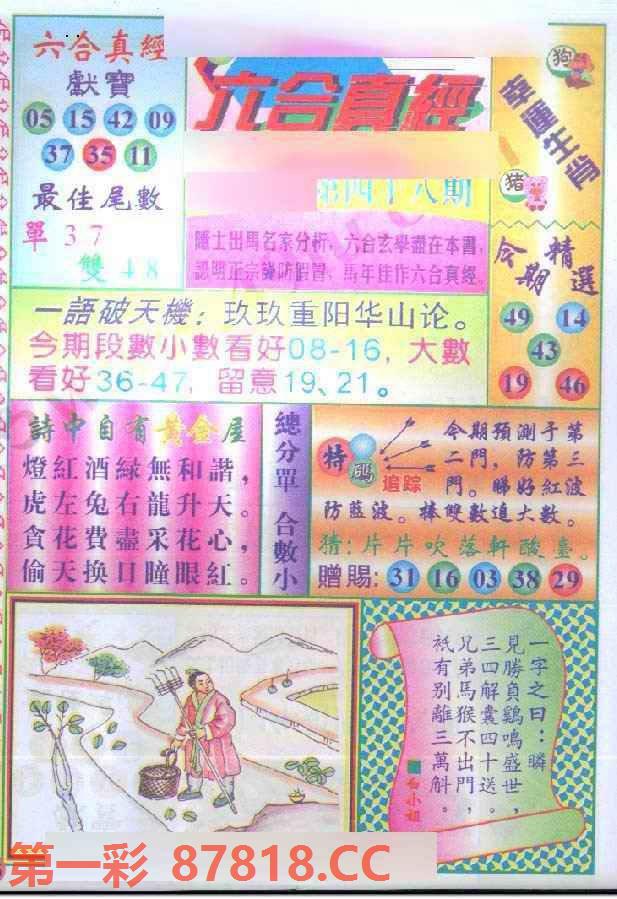 六合真經
獻寶
05 15 42 09
37 35 11
最佳尾數
單 3 7
雙 4 8
六合真經
第四十八期
隱士出馬名家分析，六合玄學盡在本書，
認明正宗謹防假冒，馬年佳作六合真經。
狗
幸運生肖
猪
今期精選
49 14
43
19 46
一語破天機：玖玖重阳华山论。
今期段數小數看好08-16，大數
看好36-47，留意19、21。
詩中自有黃金屋
燈紅酒綠無和諧，
虎左兔右龍升天。
貪花費盡采花心，
偷天换日瞳眼紅。
總分單 合數小
特碼
追踪
今期預測于第
二門，防第三
門。睇好紅波
防藍波。棒雙數追大數。
猜：片片吹落軒酸臺。
贈賜：31 16 03 38 29
一字之曰：瞬
見勝負鷄鳴盛世，
三四解囊四十送。
兄弟馬猴不出門，
衹有别離三萬斛。
白小姐
第一彩 87818.CC